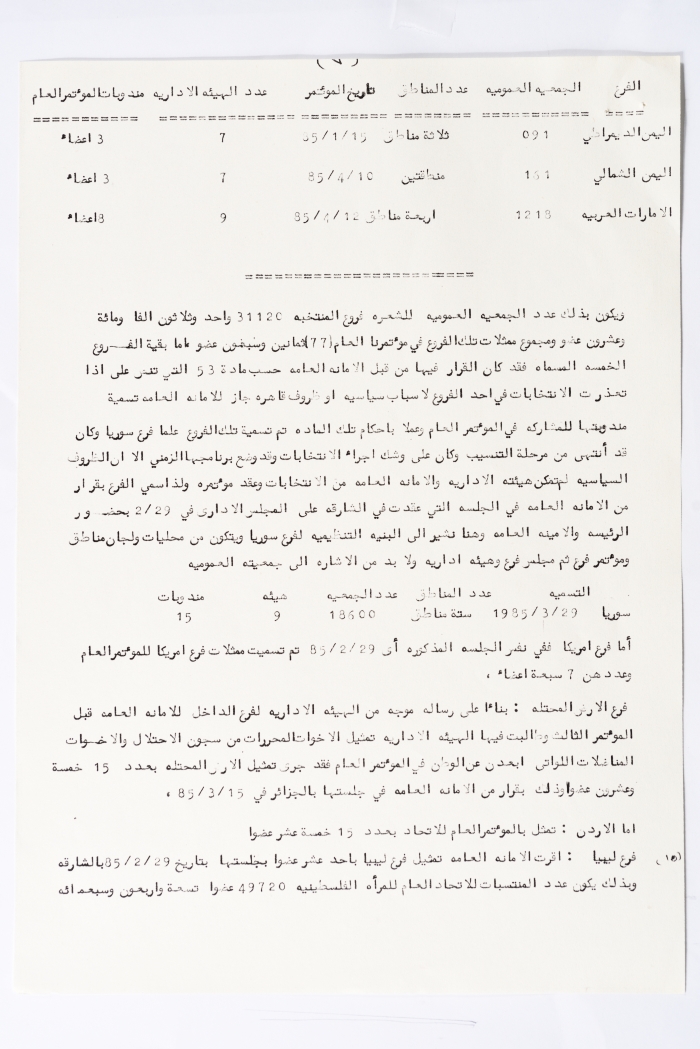 (٧)
الفرع الجمعيه العموميه عدد المناطق تاريخ الموتمر عدد الهيئه الاداريه مندوبات الموتمر العام
اليمن الديمراطي 091 ثلاثة مناطق 85/1/15 7 3 اعضاء
اليمن الشمالي 161 منطقتين 85/4/10 7 3 اعضاء
الامارات العربيه 1218 اربعة مناطق 85/4/12 9 8 اعضاء
ويكون بذلك عدد الجمعيه العموميه للشعره فروع المنتخبه 31120 واحد وثلاثون الفا ومائة
وعشرون عضو ومجموع ممثلات تلك الفروع في موتمرنا العام (77) ثمانين وسبعون عضو اما بقية الفروع
الخمسه المسماه فقد كان القرار فيها من قبل الامانه العامه حسب مادة 53 التي تنص على اذا
تعذرت الانتخابات في احد الفروع لاسباب سياسيه او ظروف قاهره جاز للامانه العامه تسمية
مندوبتها للمشاركه في الموتمر العام وعملا باحكام تلك الماده تم تسمية تلك الفروع علما فرع سوريا وكان
قد أنتهى من مرحلة التنسيب وكان على وشك اجراء الانتخابات وقد وضع برنامجها الزمني الا ان الظروف
السياسيه لم تمكن هيئته الاداريه والامانه العامه من الانتخابات وعقد موتمره ولذا سمي الفرع بقرار
من الامانه العامه في الجلسه التي عقدت في الشارقه على المجلس الادارى في 2/29 بحضور
الرئيسه والامينه العامه وهنا نشير الى البنيه التنظيميه لفرع سوريا ويتكون من محليات ولجان مناطق
وموتمر فرع ثم مجلس فرع وهيئه اداريه ولا بد من الاشاره الى جمعيته العموميه
التسميه عدد المناطق عدد الجمعيه هيئه مندوبات
سوريا 1985/3/29 ستة مناطق 18600 9 15
أما فرع امريكا ففي نفس الجلسه المذكوره أى 85/2/29 تم تسميت ممثلات فرع امريكا للموتمر العام
وعددهن 7 سبعة اعضاء ،
فرع الارض المحتله : بناءا على رساله موجه من الهيئه الاداريه لفرع الداخل للامانه العامه قبل
الموتمر الثالث وطالبت فيها الهيئه الاداريه تمثيل الاخوات المحررات من سجون الاحتلال والاخوات
المناضلات اللواتى ابعدن عن الوطن في الموتمر العام فقد جرى تمثيل الارض المحتله بعدد 15 خمسة
وعشرون عضوا وذلك بقرار من الامانه العامه في جلستها بالجزائر في 85/3/15 ،
اما الاردن : تمثل بالموتمر العام للاتحاد بعدد 15 خمسة عشر عضوا
(١٥) فرع ليبيا : اقرت الامانه العامه تمثيل فرع ليبيا باحد عشر عضوا بجلستها بتاريخ 85/2/29 بالشارقه
وبذلك يكون عدد المنتسبات للاتحاد العام للمرأه الفلسطينيه 49720 عضوا تسعة واربعون وسبعمائه